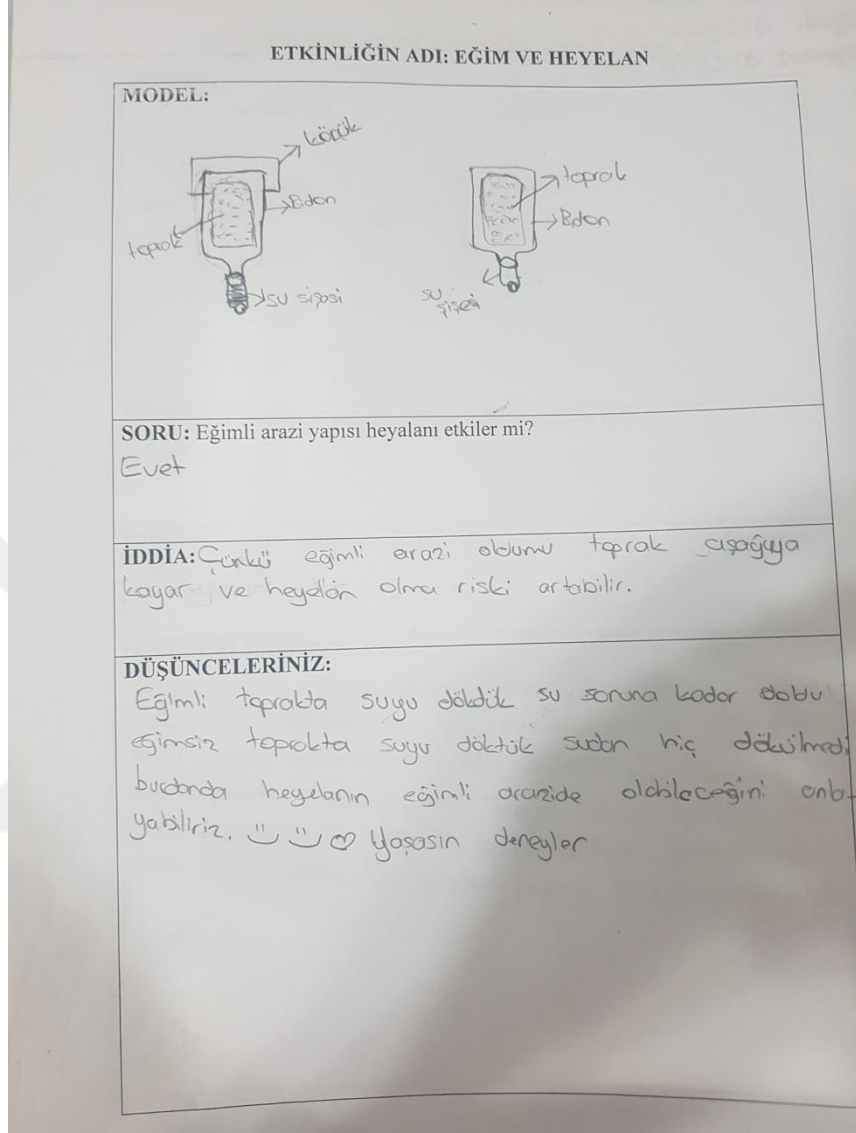 ETKİNLİĞİN ADI: EĞİM VE HEYELAN
MODEL:
köpük
Bidon
toprak
su şişesi
toprak
Bidon
su
şişesi
SORU: Eğimli arazi yapısı heyalanı etkiler mi?
Evet
İDDİA: Çünkü eğimli arazi oldumu toprak aşağıya
kayar ve heyelan olma riski artabilir.
DÜŞÜNCELERİNİZ:
Eğimli toprakta suyu döktük su sonuna kadar doldu
eğimsiz toprakta suyu döktük sudan hiç dökülmedi
burdanda heyelanın eğimli arazide olabileceğini anla
yabiliriz. Yaşasın deneyler